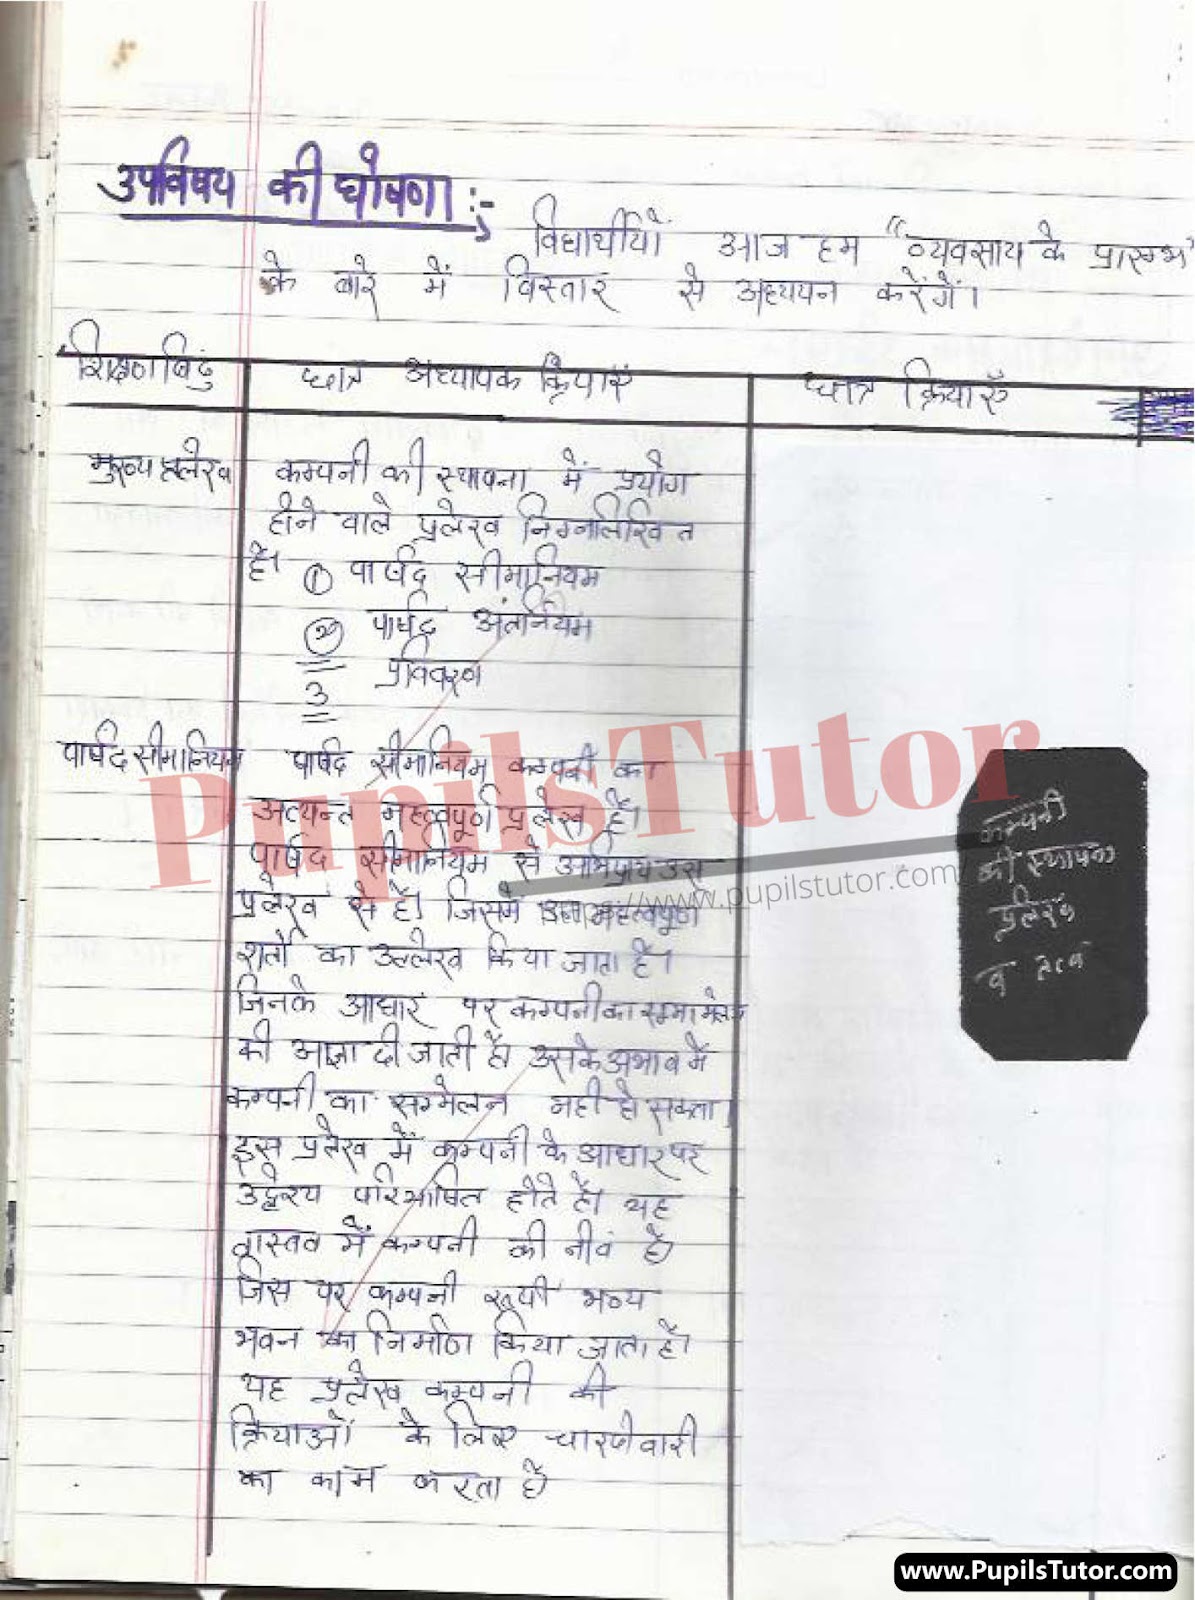 उपविषय की घोषणा :-
विद्यार्थीयों आज हम "व्यवसाय के प्रारम्भ"
के बारे में विस्तार से अध्ययन करेंगें।
शिक्षण बिंदु छात्र अध्यापक क्रियाएँ छात्र क्रियाएँ
मुख्य प्रलेख
कम्पनी की स्थापना में प्रयोग
होने वाले प्रलेख निम्नलिखित
है।
① पार्षद सीमानियम
② पार्षद अंतर्नियम
3 प्रविवरण
पार्षद सीमानियम
पार्षद सीमानियम कम्पनी का
अत्यन्त महत्वपूर्ण प्रलेख है।
पार्षद सीमानियम से अभिप्राय उस
प्रलेख से है। जिसमें उन महत्वपूर्ण
शर्तो का उल्लेख किया जाता है।
जिनके आधार पर कम्पनी का
की आज्ञा दी जाती है। उसके अभाव में
कम्पनी का सम्मेलन नही हो सकता।
इस प्रलेख में कम्पनी के आधार पर
उद्देश्य परिभाषित होते है। यह
वास्तव में कम्पनी की नीवं है।
जिस पर कम्पनी रूपी भव्य
भवन का निर्माण किया जाता है।
यह प्रलेख कम्पनी की
क्रियाओं के लिए चारदीवारी
का काम करता है।
कम्पनी
की स्थापना
प्रलेख
व तत्व
PupilsTutor
https://www.pupilstutor.com/
www.PupilsTutor.com